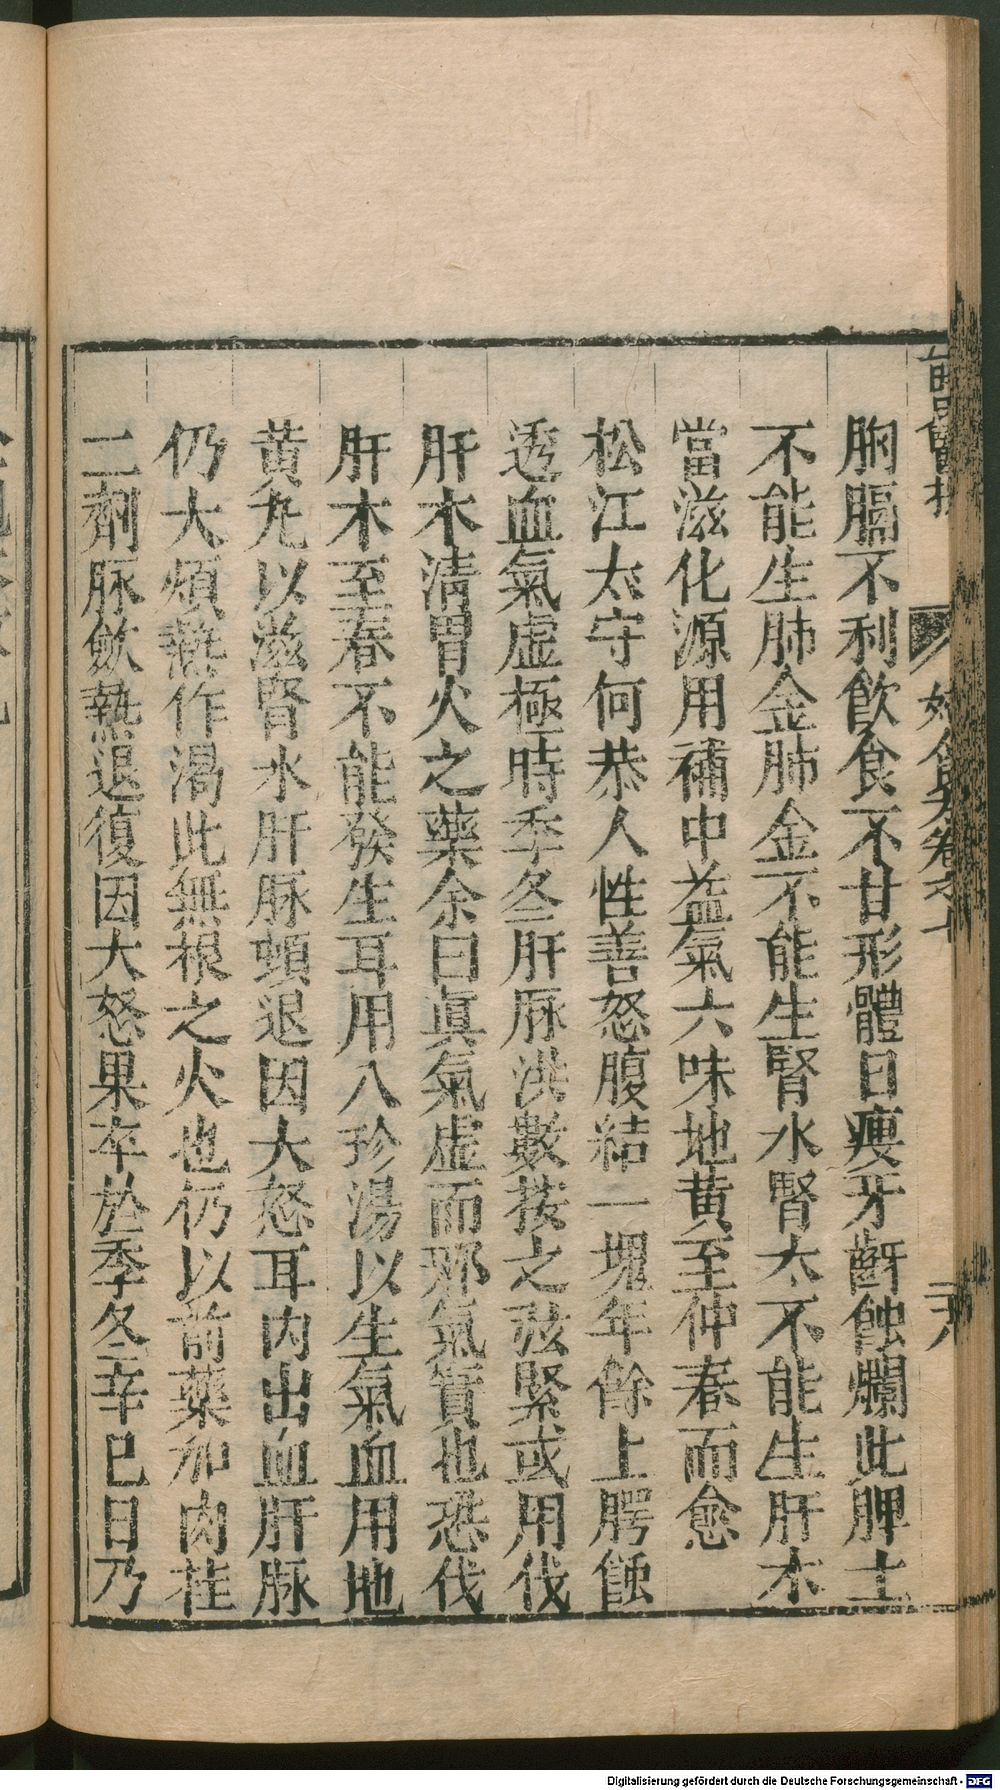 胸膈不利飲食不甘形體日瘦牙齗蝕爛此脾土
不能生肺金肺金不能生腎水腎水不能生肝木
當滋化源用補中益氣六味地黄至仲春而愈
松江太守何恭人性善怒腹結一塊年餘上腭蝕
透血氣虛極時季冬肝脉洪數按之弦緊或用伐
肝木清胃火之藥余曰眞氣虛而邪氣實也恐伐
肝木至春不能發生耳用八珍湯以生氣血用地
黄丸以滋腎水肝脉頓退因大怒耳内出血肝脉
仍大煩熱作渴此無根之火也仍以前藥加肉桂
二劑脉斂熱退復因大怒果卒於季冬辛巳日乃
Digitalisierung gefördert durch die Deutsche Forschungsgemeinschaft - DFG